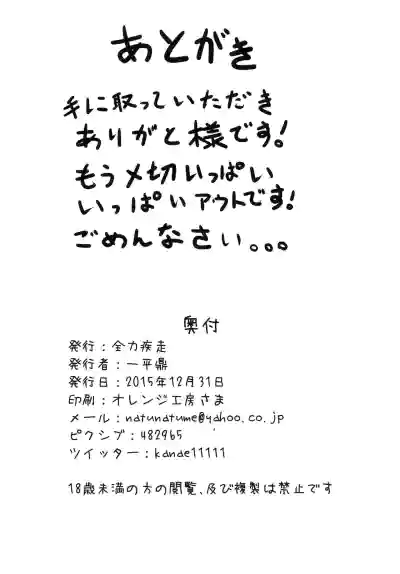 あとがき
手に取っていただき
ありがと様です!
もう〆切いっぱい
いっぱいアウトです!
ごめんなさい。。。
奥付
発行：全力疾走
発行者：一平鼎
発行日：2015年12月31日
印刷：オレンジ工房さま
メール：natunatume@yahoo.co.jp
ピクシブ：482965
ツイッター：kanae11111
18歳未満の方の閲覧、及び複製は禁止です